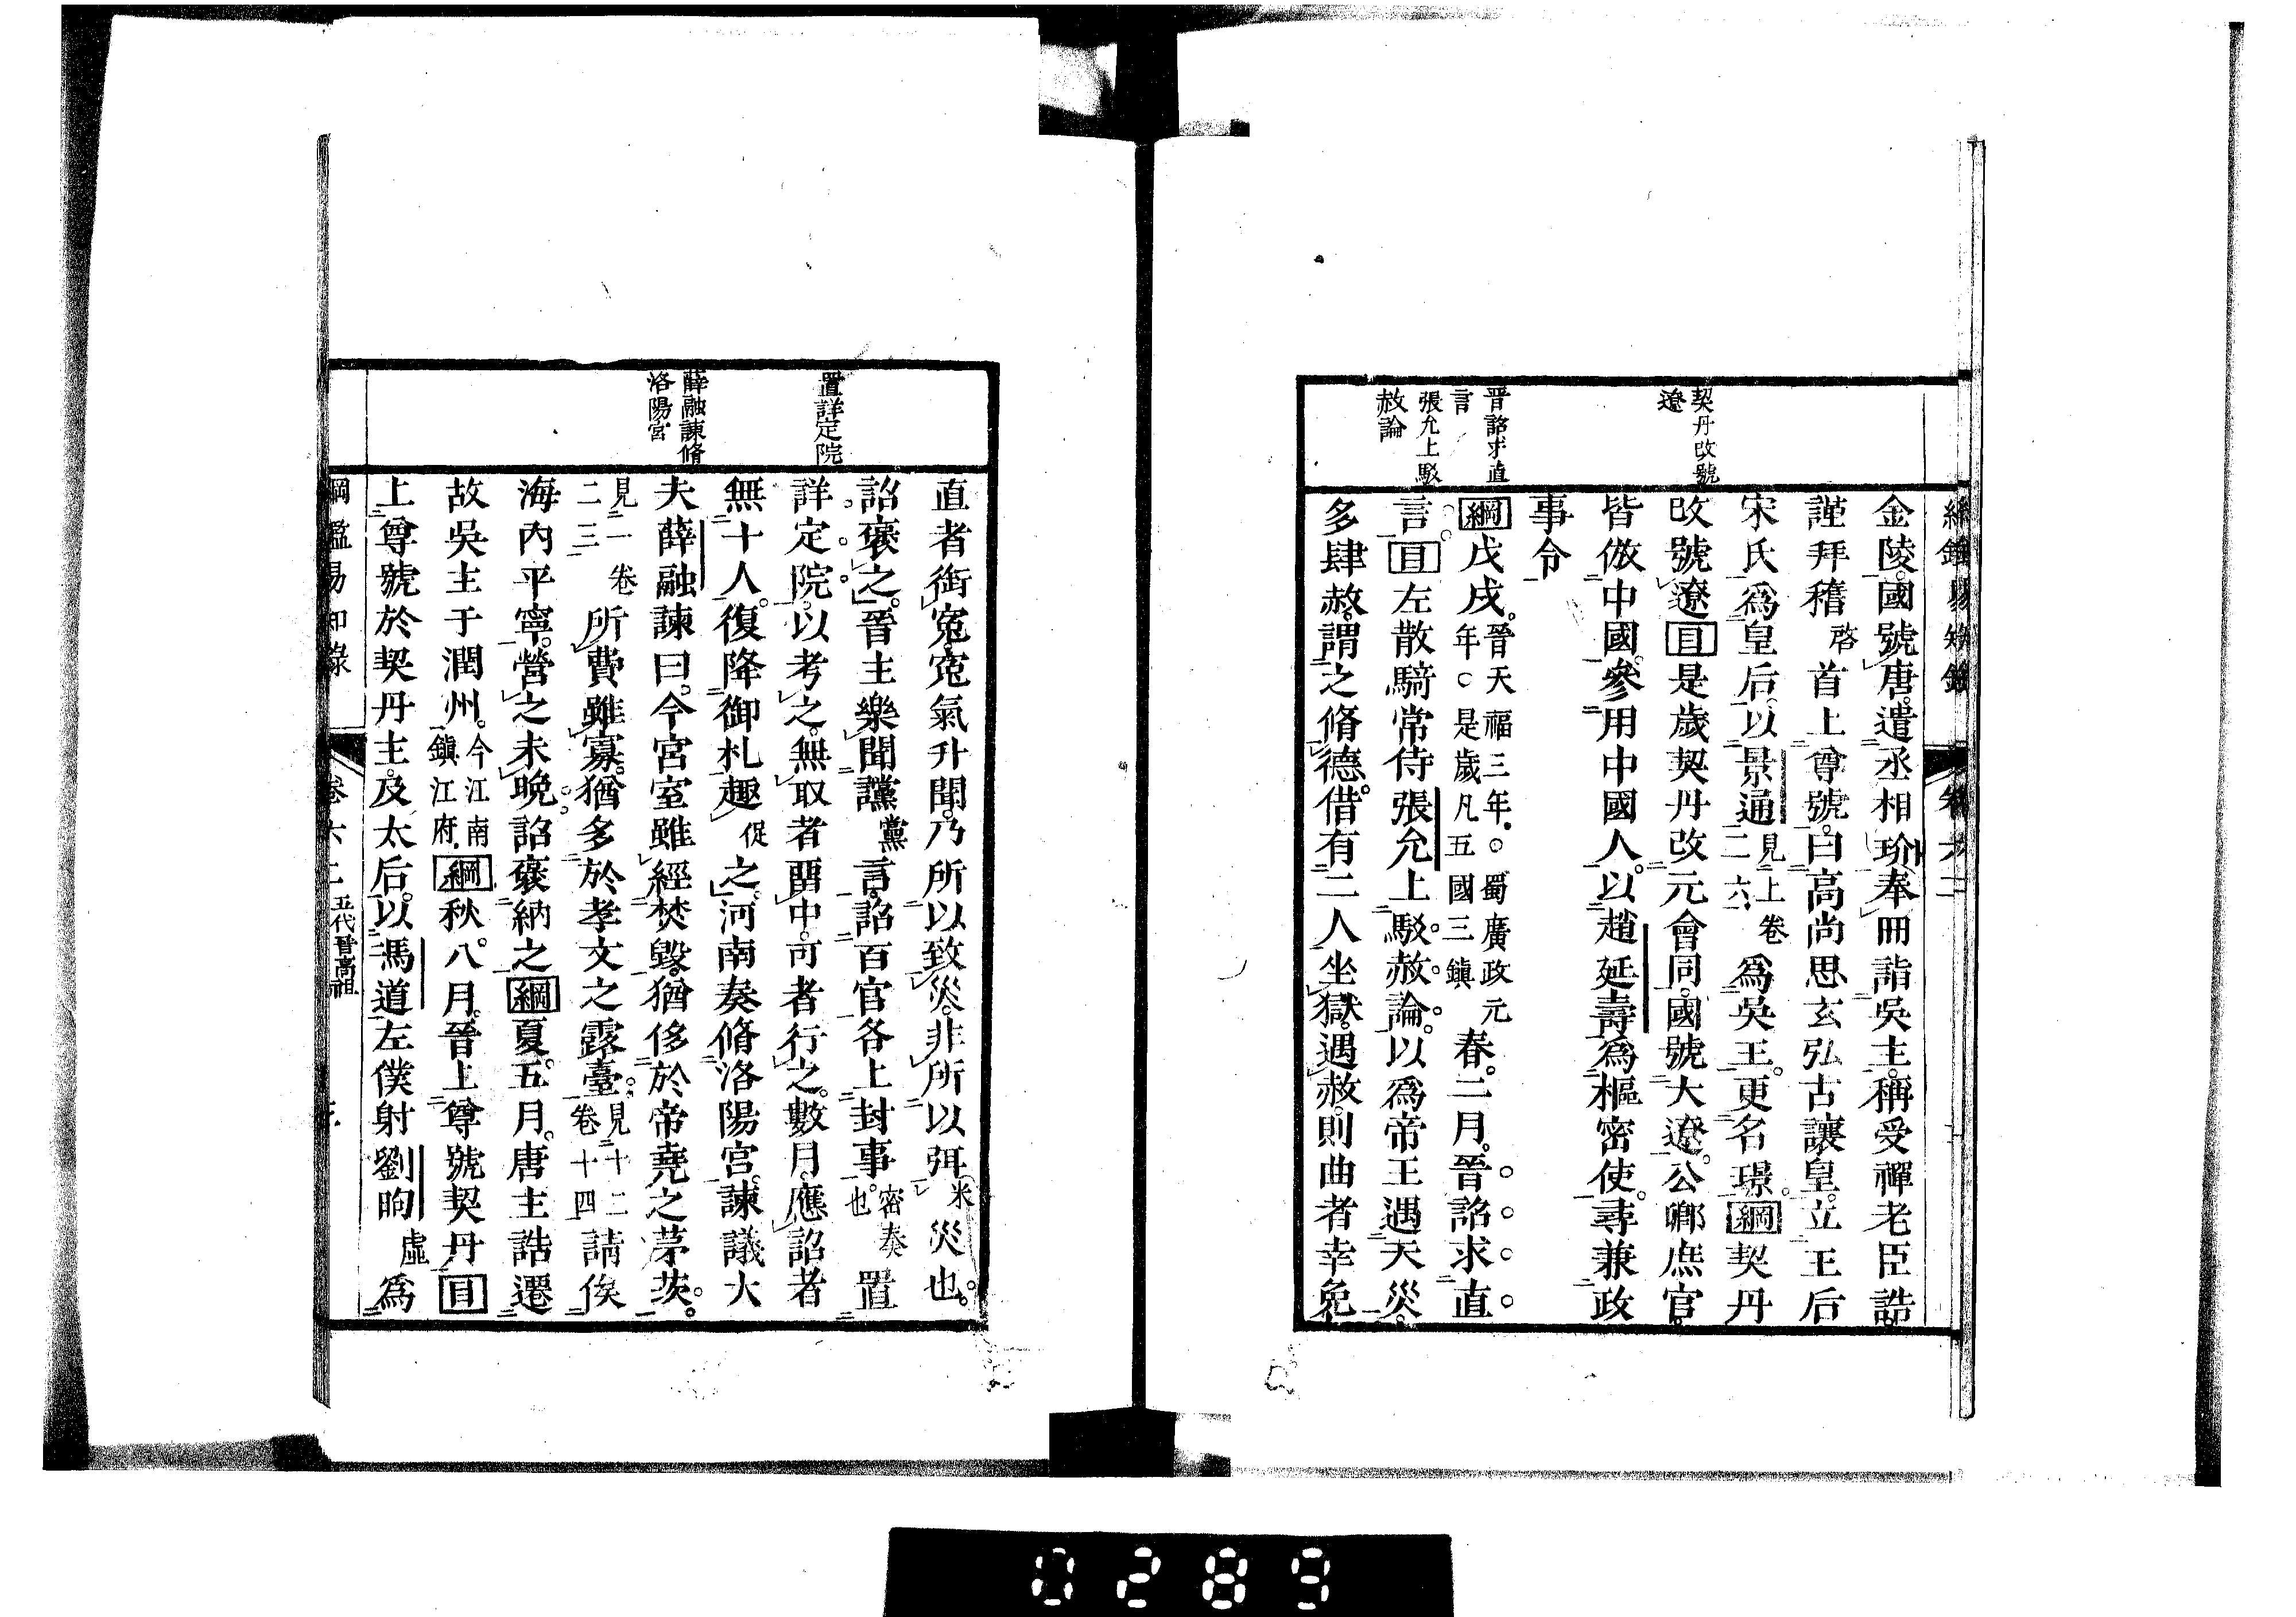 契丹改號
遼
晉詔求直
言
張允上駁
赦論
金陵。國號唐。遣丞相玠奉冊詣吳主。稱受禪老臣誥。
謹拜稽啓首上尊號。曰高尚思玄弘古讓皇。立王后
宋氏爲皇后。以景通見上卷二六爲吳王。更名璟。綱契丹
改號遼目是歲契丹改元會同。國號大遼。公卿庶官。
皆倣中國。參用中國人。以趙延壽爲樞密使。尋兼政
事令
綱戊戌。晉天福三年。○蜀廣政元年。○是歲凡五國三鎮春。二月。晉詔求直
言。目左散騎常侍張允上駁赦論。以爲帝王遇天災。
多肆赦。謂之脩德。借有二人坐獄。遇赦。則曲者幸免
置詳定院
薛融諫脩
洛陽宮
直者銜冤。冤氣升聞。乃所以致災。非所以弭米災也。
詔褒之。晉主樂聞讜黨言。詔百官各上封事。密奏也置
詳定院。以考之。無取者畱中。可者行之。數月。應詔者
無十人。復降御札趣促之。河南奏脩洛陽宮。諫議大
夫薛融諫曰。今宮室雖經焚毀。猶侈於帝堯之茅茨。
見一卷二三所費雖寡。猶多於孝文之露臺。見十二卷十四請俟
海內平寧。營之未晚。詔褒納之綱夏。五月。唐主誥遷
故吳主于潤州。今江南鎮江府。綱秋。八月。晉上尊號契丹目
上尊號於契丹主。及太后。以馮道左僕射劉昫虛爲
綱鑑易知錄 卷六二 五代晉高祖